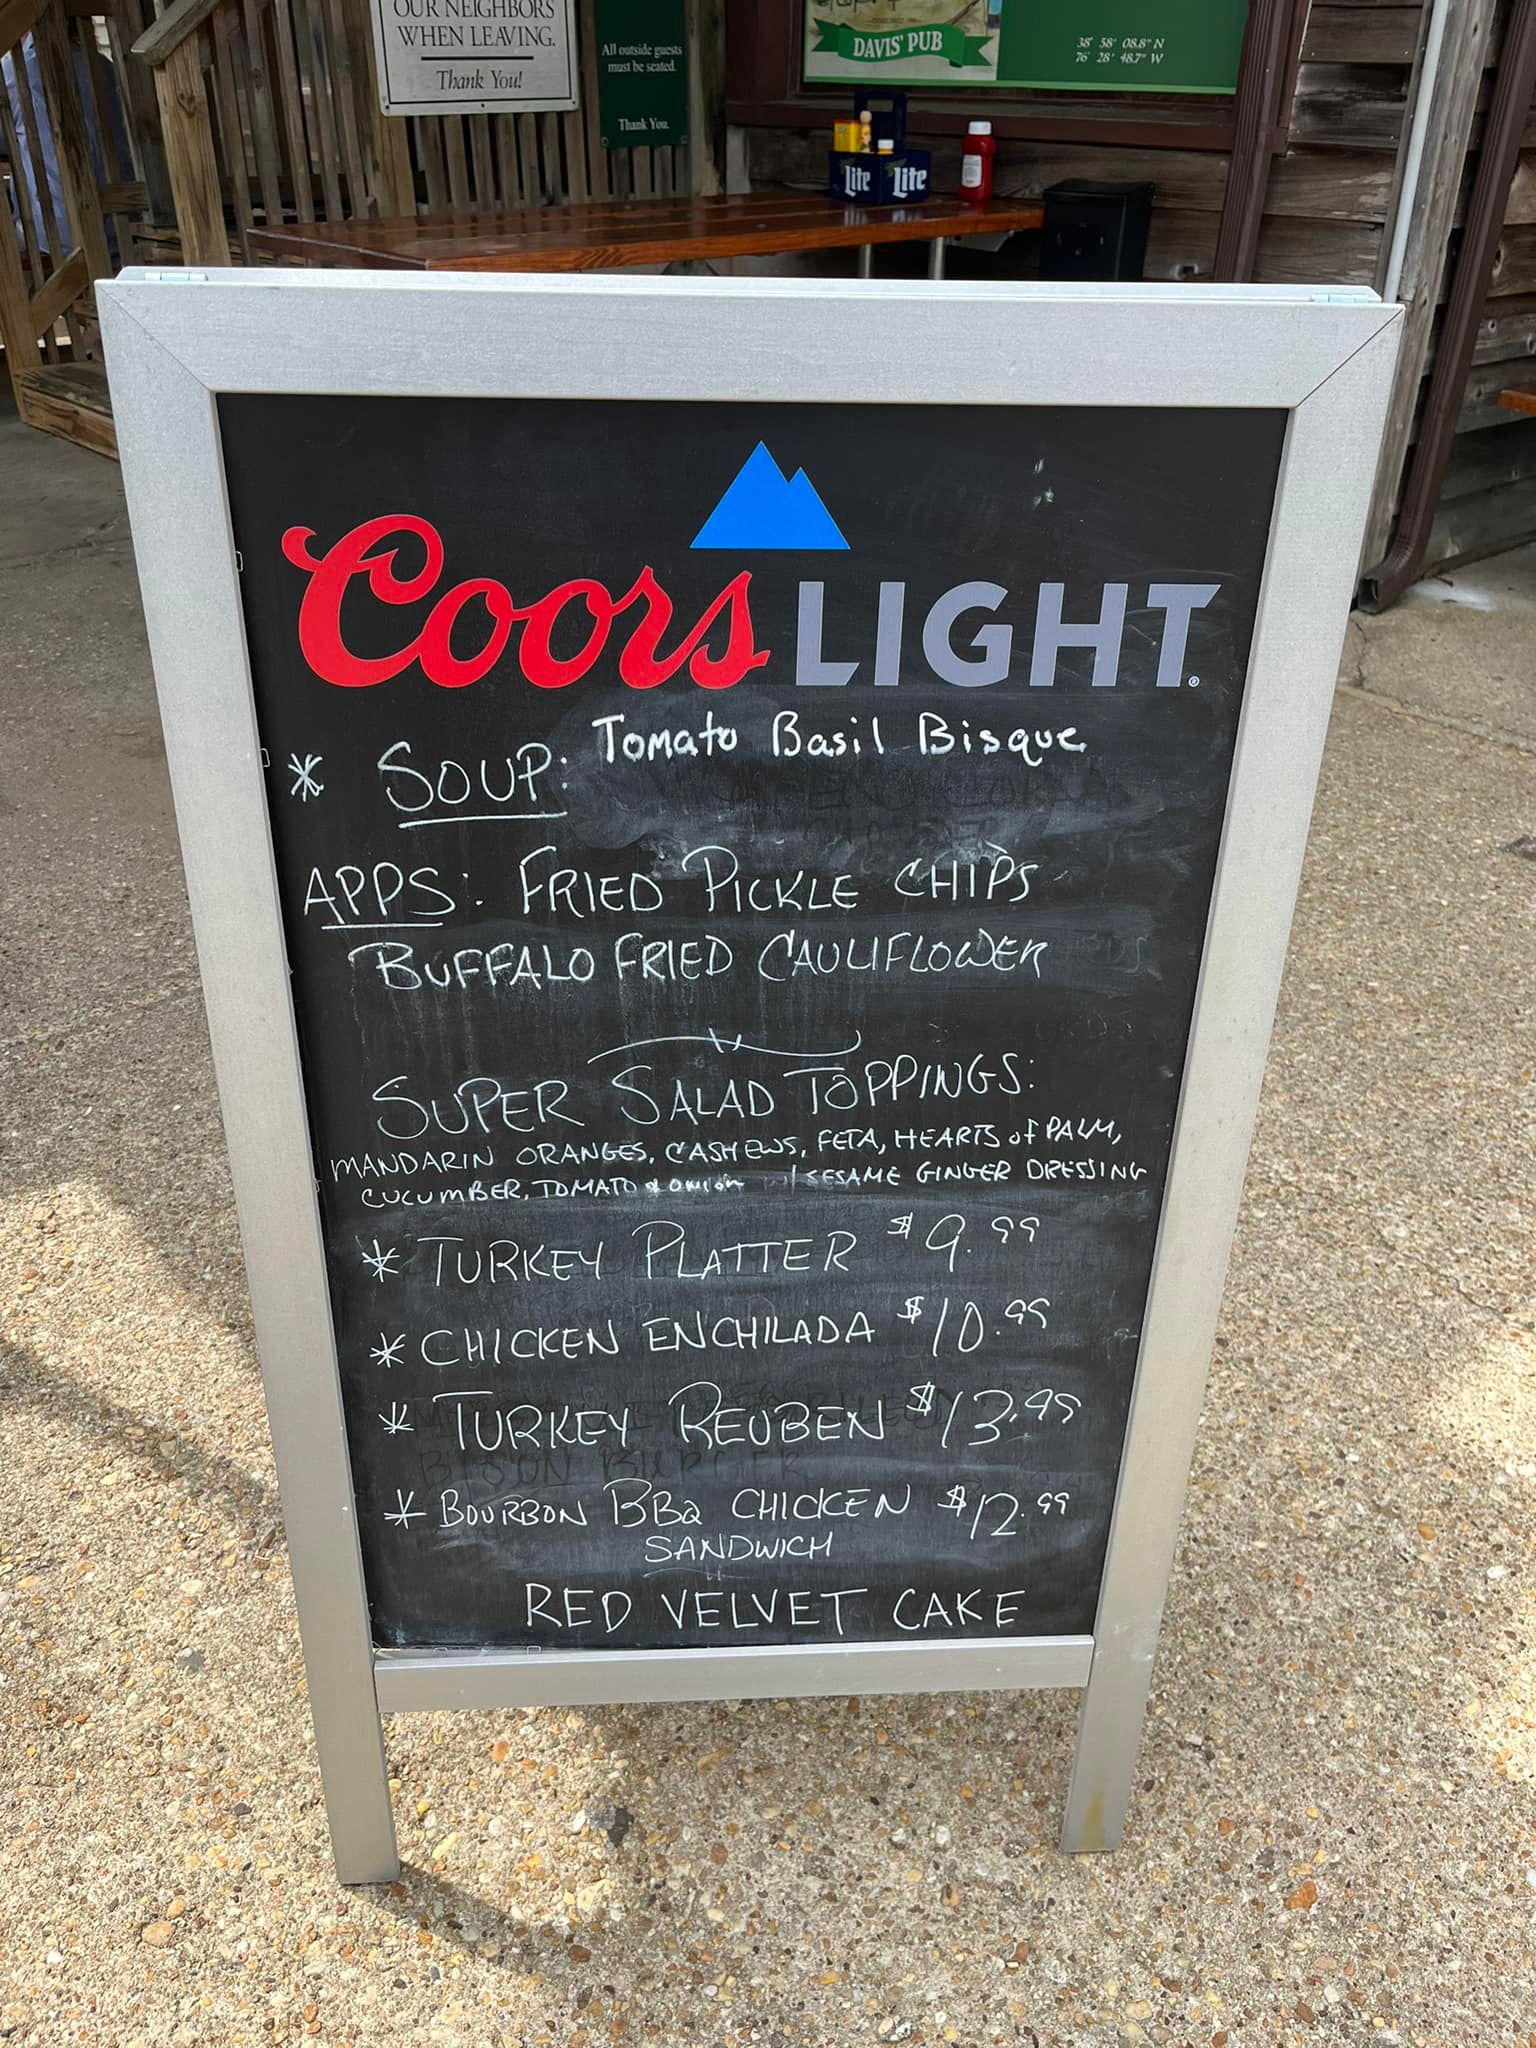 OUR NEIGHBORS
WHEN LEAVING.
Thank You!
All outside guests
must be seated.
Thank You.
DAVIS' PUB
38° 58' 08.8" N
76° 28' 48.7" W
Lite Lite
Coors LIGHT
* SOUP: Tomato Basil Bisque
APPS: FRIED PICKLE CHIPS
BUFFALO FRIED CAULIFLOWER
SUPER SALAD TOPPINGS:
MANDARIN ORANGES, CASHEWS, FETA, HEARTS of PALM,
CUCUMBER, TOMATO & ONION w/ SESAME GINGER DRESSING
* TURKEY PLATTER $9.99
* CHICKEN ENCHILADA $10.99
* TURKEY REUBEN $13.99
* BOURBON BBQ CHICKEN $12.99
SANDWICH
RED VELVET CAKE